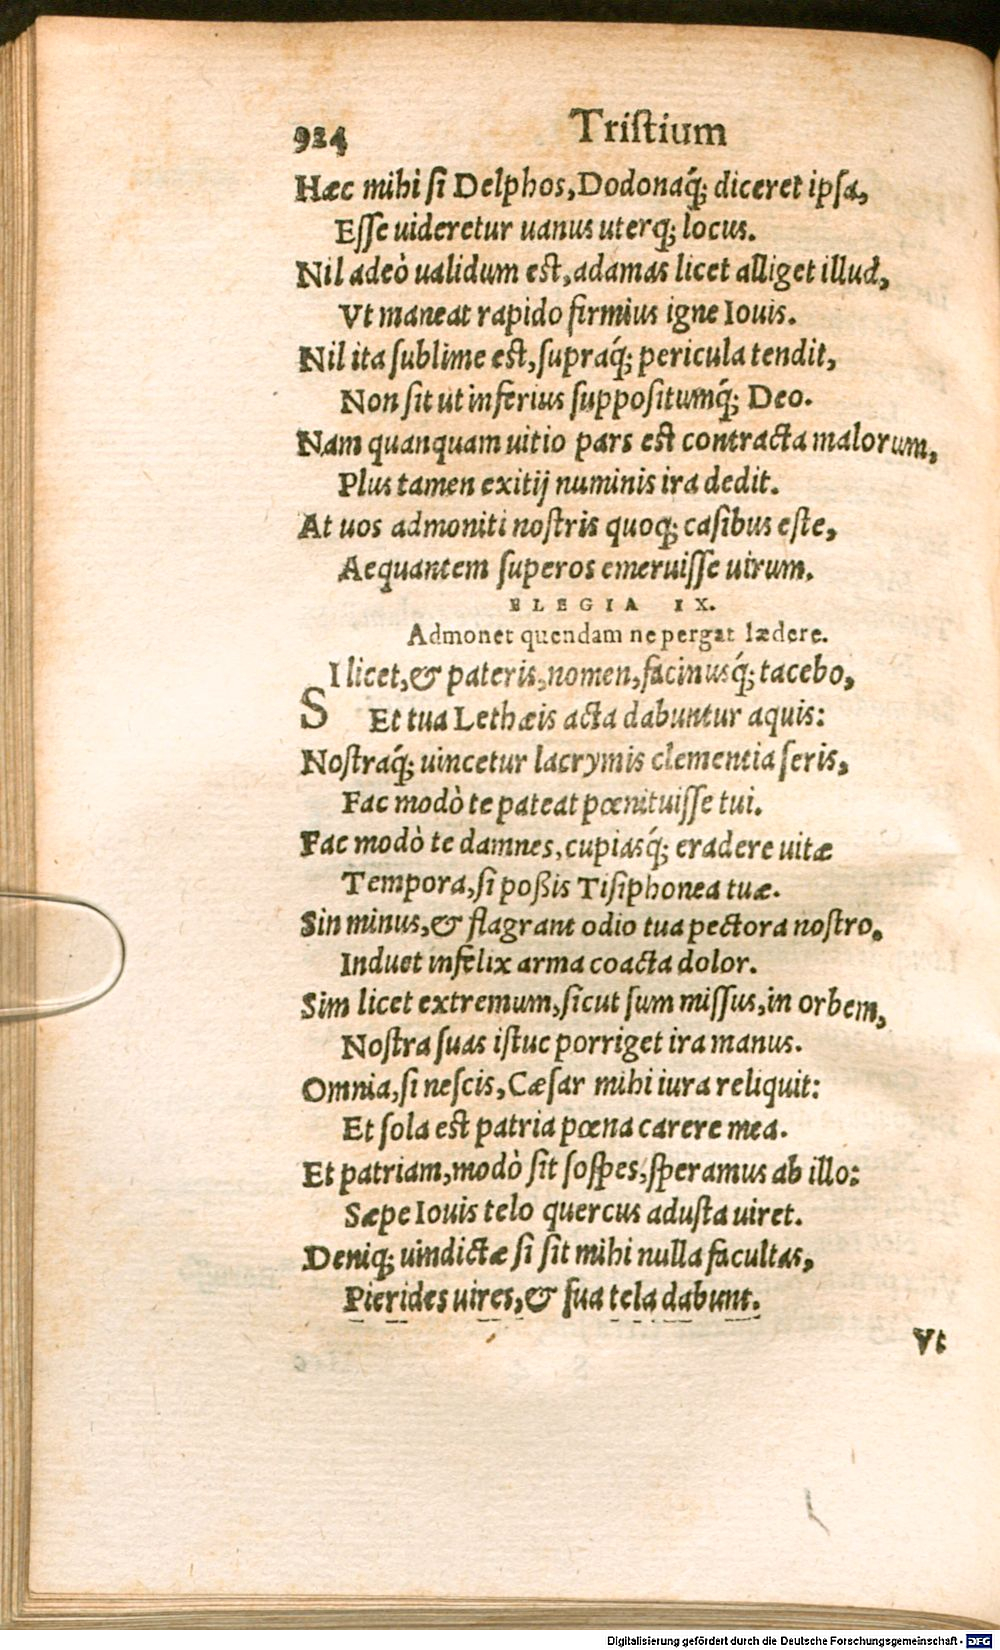 924 Tristium
Hæc mihi si Delphos, Dodonaq́; diceret ipsa,
Esse uideretur uanus uterq; locus.
Nil adeò ualidum est, adamas licet alliget illud,
Vt maneat rapido firmius igne Iouis.
Nil ita sublime est, supraq́; pericula tendit,
Non sit ut inferius suppositumq́; Deo.
Nam quanquam uitio pars est contracta malorum,
Plus tamen exitij numinis ira dedit.
At uos admoniti nostris quoq; casibus este,
Aequantem superos emeruisse uirum.
ELEGIA IX.
Admonet quendam ne pergat lædere.
SI licet, & pateris, nomen, facinusq́; tacebo,
Et tua Lethæis acta dabuntur aquis:
Nostraq́; uincetur lacrymis clementia seris,
Fac modò te pateat pœnituisse tui.
Fac modò te damnes, cupiasq́; eradere uitæ
Tempora, si poßis Tisiphonea tuæ.
Sin minus, & flagrant odio tua pectora nostro.
Induet infelix arma coacta dolor.
Sim licet extremum, sicut sum missus, in orbem,
Nostra suas istuc porriget ira manus.
Omnia, si nescis, Cæsar mihi iura reliquit:
Et sola est patria pœna carere mea.
Et patriam, modò sit sospes, speramus ab illo:
Sæpe Iouis telo quercus adusta uiret.
Deniq; uindictæ si sit mihi nulla facultas,
Pierides uires, & sua tela dabunt.
Vt
Digitalisierung gefördert durch die Deutsche Forschungsgemeinschaft - DFG